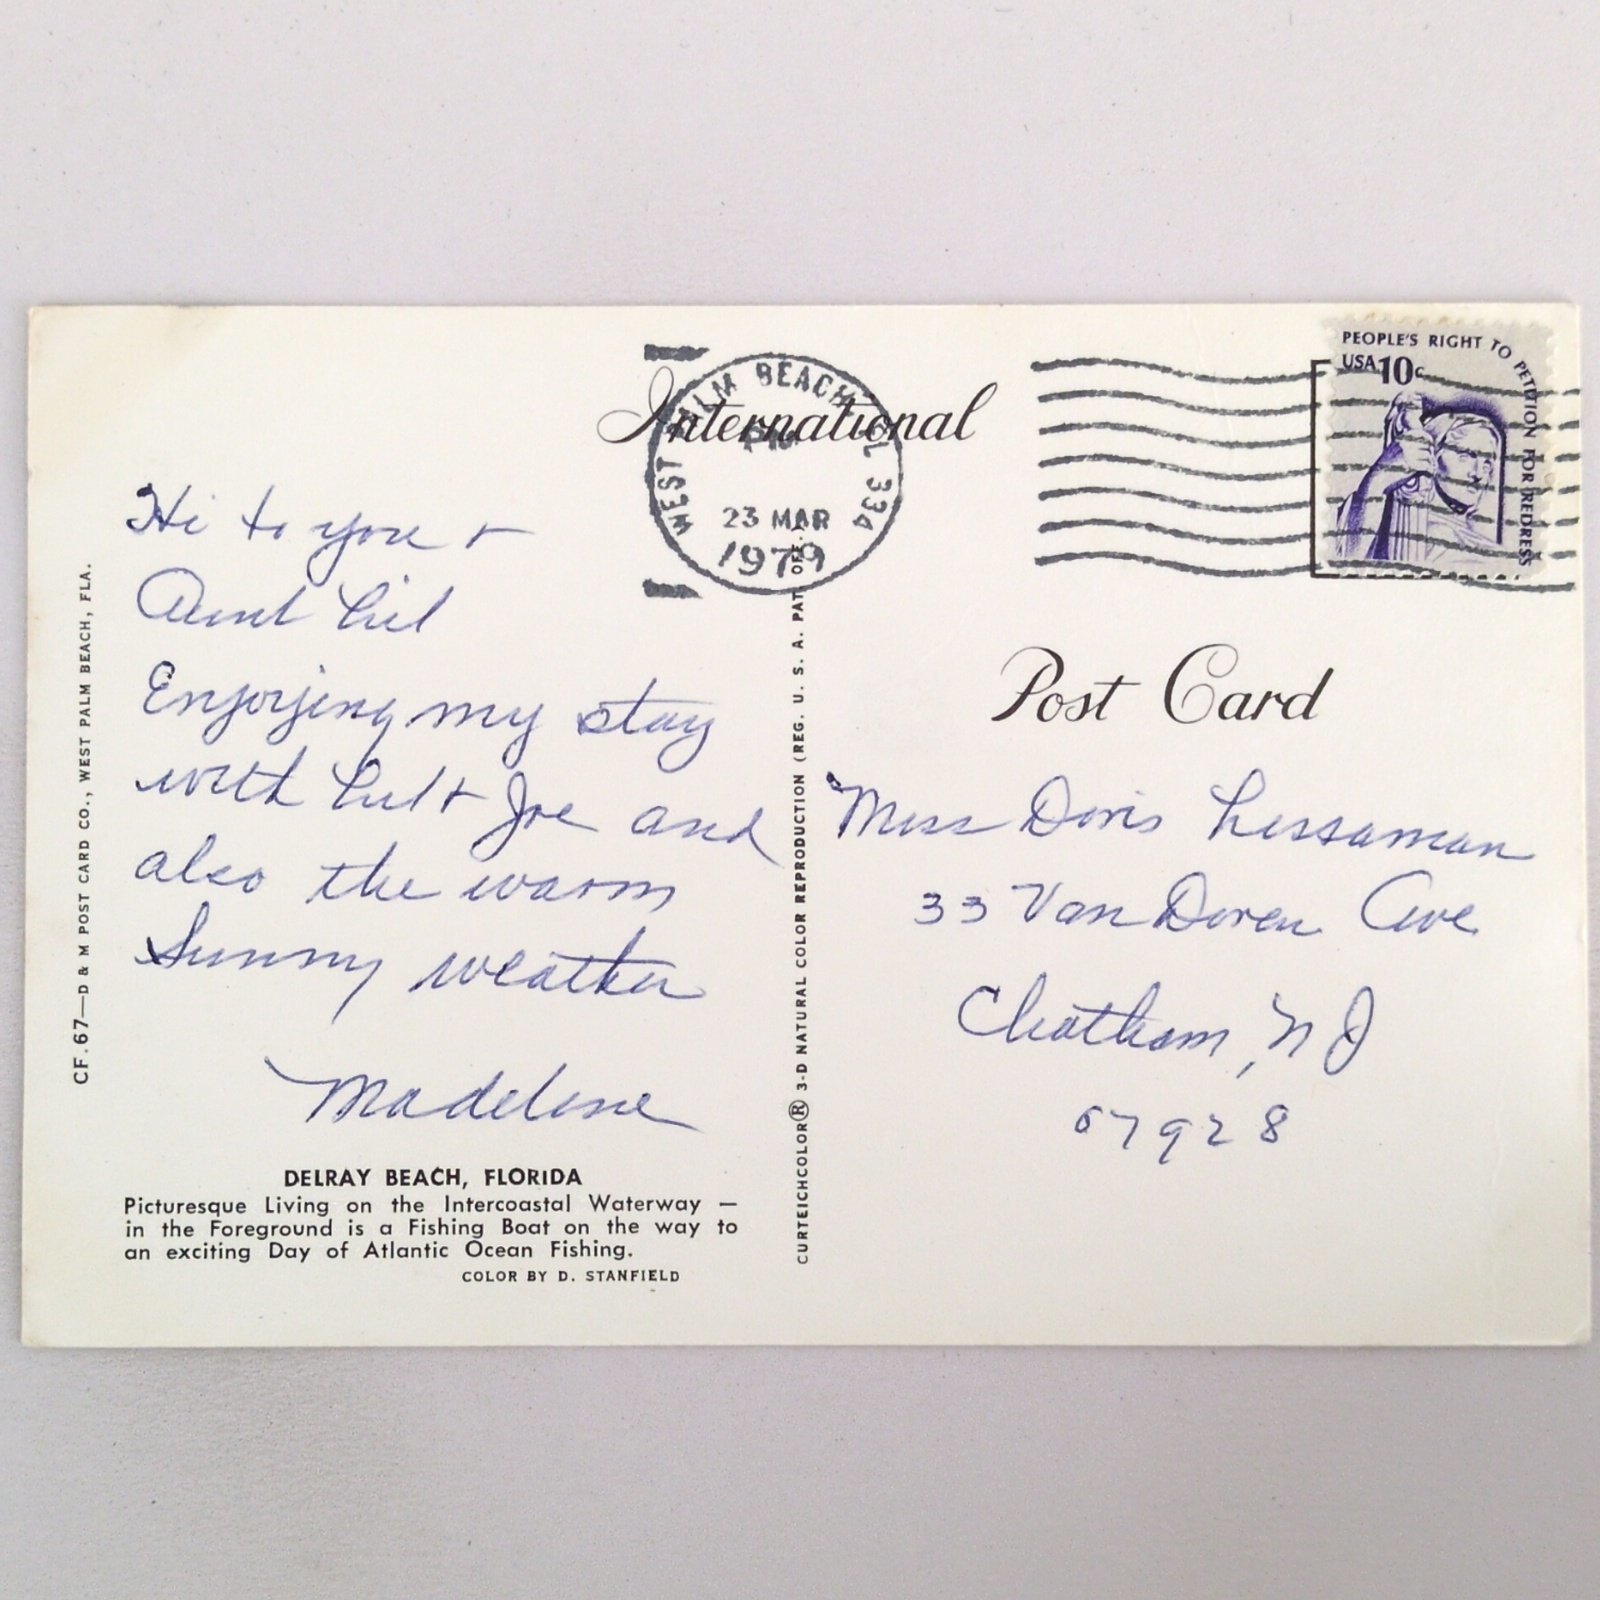 International
WEST PALM BEACH FL 334
PM
23 MAR
1979
PEOPLE'S RIGHT TO PETITION FOR REDRESS
USA 10c
Hi to you +
Aunt Lil
Enjoying my stay
with Lil + Joe and
also the warm
Sunny weather
Madeline
DELRAY BEACH, FLORIDA
Picturesque Living on the Intercoastal Waterway —
in the Foreground is a Fishing Boat on the way to
an exciting Day of Atlantic Ocean Fishing.
COLOR BY D. STANFIELD
CF.67—D & M POST CARD CO., WEST PALM BEACH, FLA.
CURTEICHCOLOR® 3-D NATURAL COLOR REPRODUCTION (REG. U. S. A. PAT. OFF.)
Post Card
Miss Doris Lissaman
33 Van Doren Ave
Chatham, NJ
07928